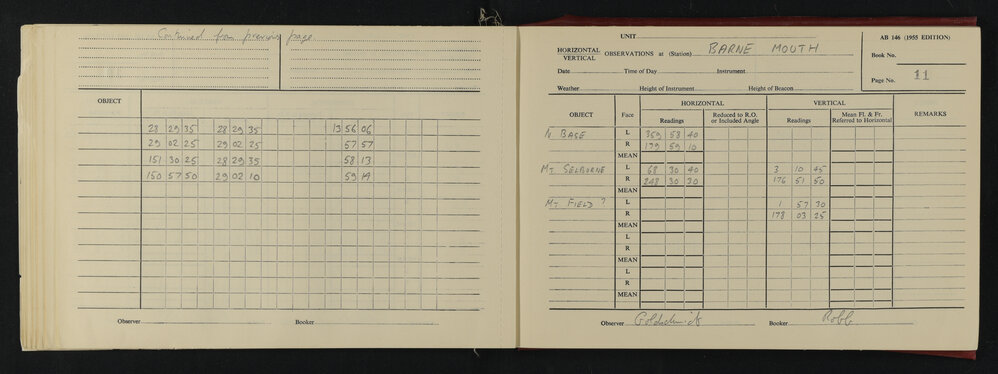 Continued from previous page
OBJECT
28 29 35 28 29 35 13 56 06
29 02 25 29 02 25 57 57
151 30 25 28 29 35 58 13
150 57 50 29 02 10 59 19
Observer Booker
UNIT
AB 146 (1955 EDITION)
HORIZONTAL VERTICAL OBSERVATIONS at (Station) BARNE MOUTH
Book No.
Date Time of Day Instrument
Page No. 11
Weather Height of Instrument Height of Beacon
OBJECT Face HORIZONTAL VERTICAL REMARKS
Readings Reduced to R.O. or Included Angle Readings Mean Fl. & Fr. Referred to Horizontal
N BASE L 359 58 40
R 179 59 10
MEAN
MT. SELBORNE L 68 30 40 3 10 45
R 248 30 30 176 51 50
MEAN
MT FIELD ? L 1 57 30
R 178 03 25
MEAN
L
R
MEAN
L
R
MEAN
Observer Goldschmidt Booker Robb